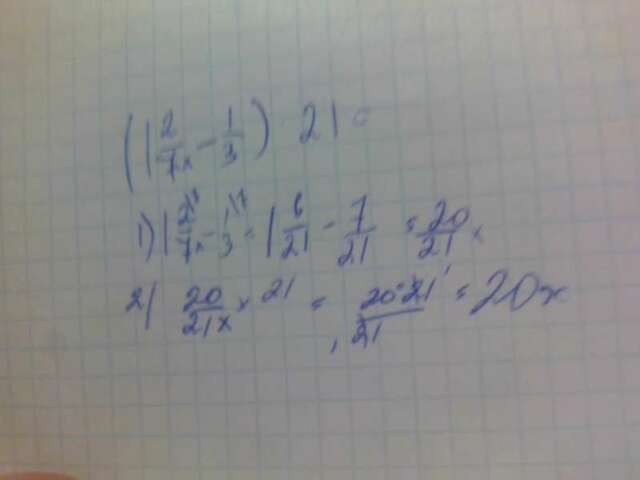 (1 2/7x - 1/3) 21 =
1) 1 2/7x - 1/3 = 1 6/21 - 7/21 = 20/21 x
2) 20/21x × 21 = 20·21/21 = 20x